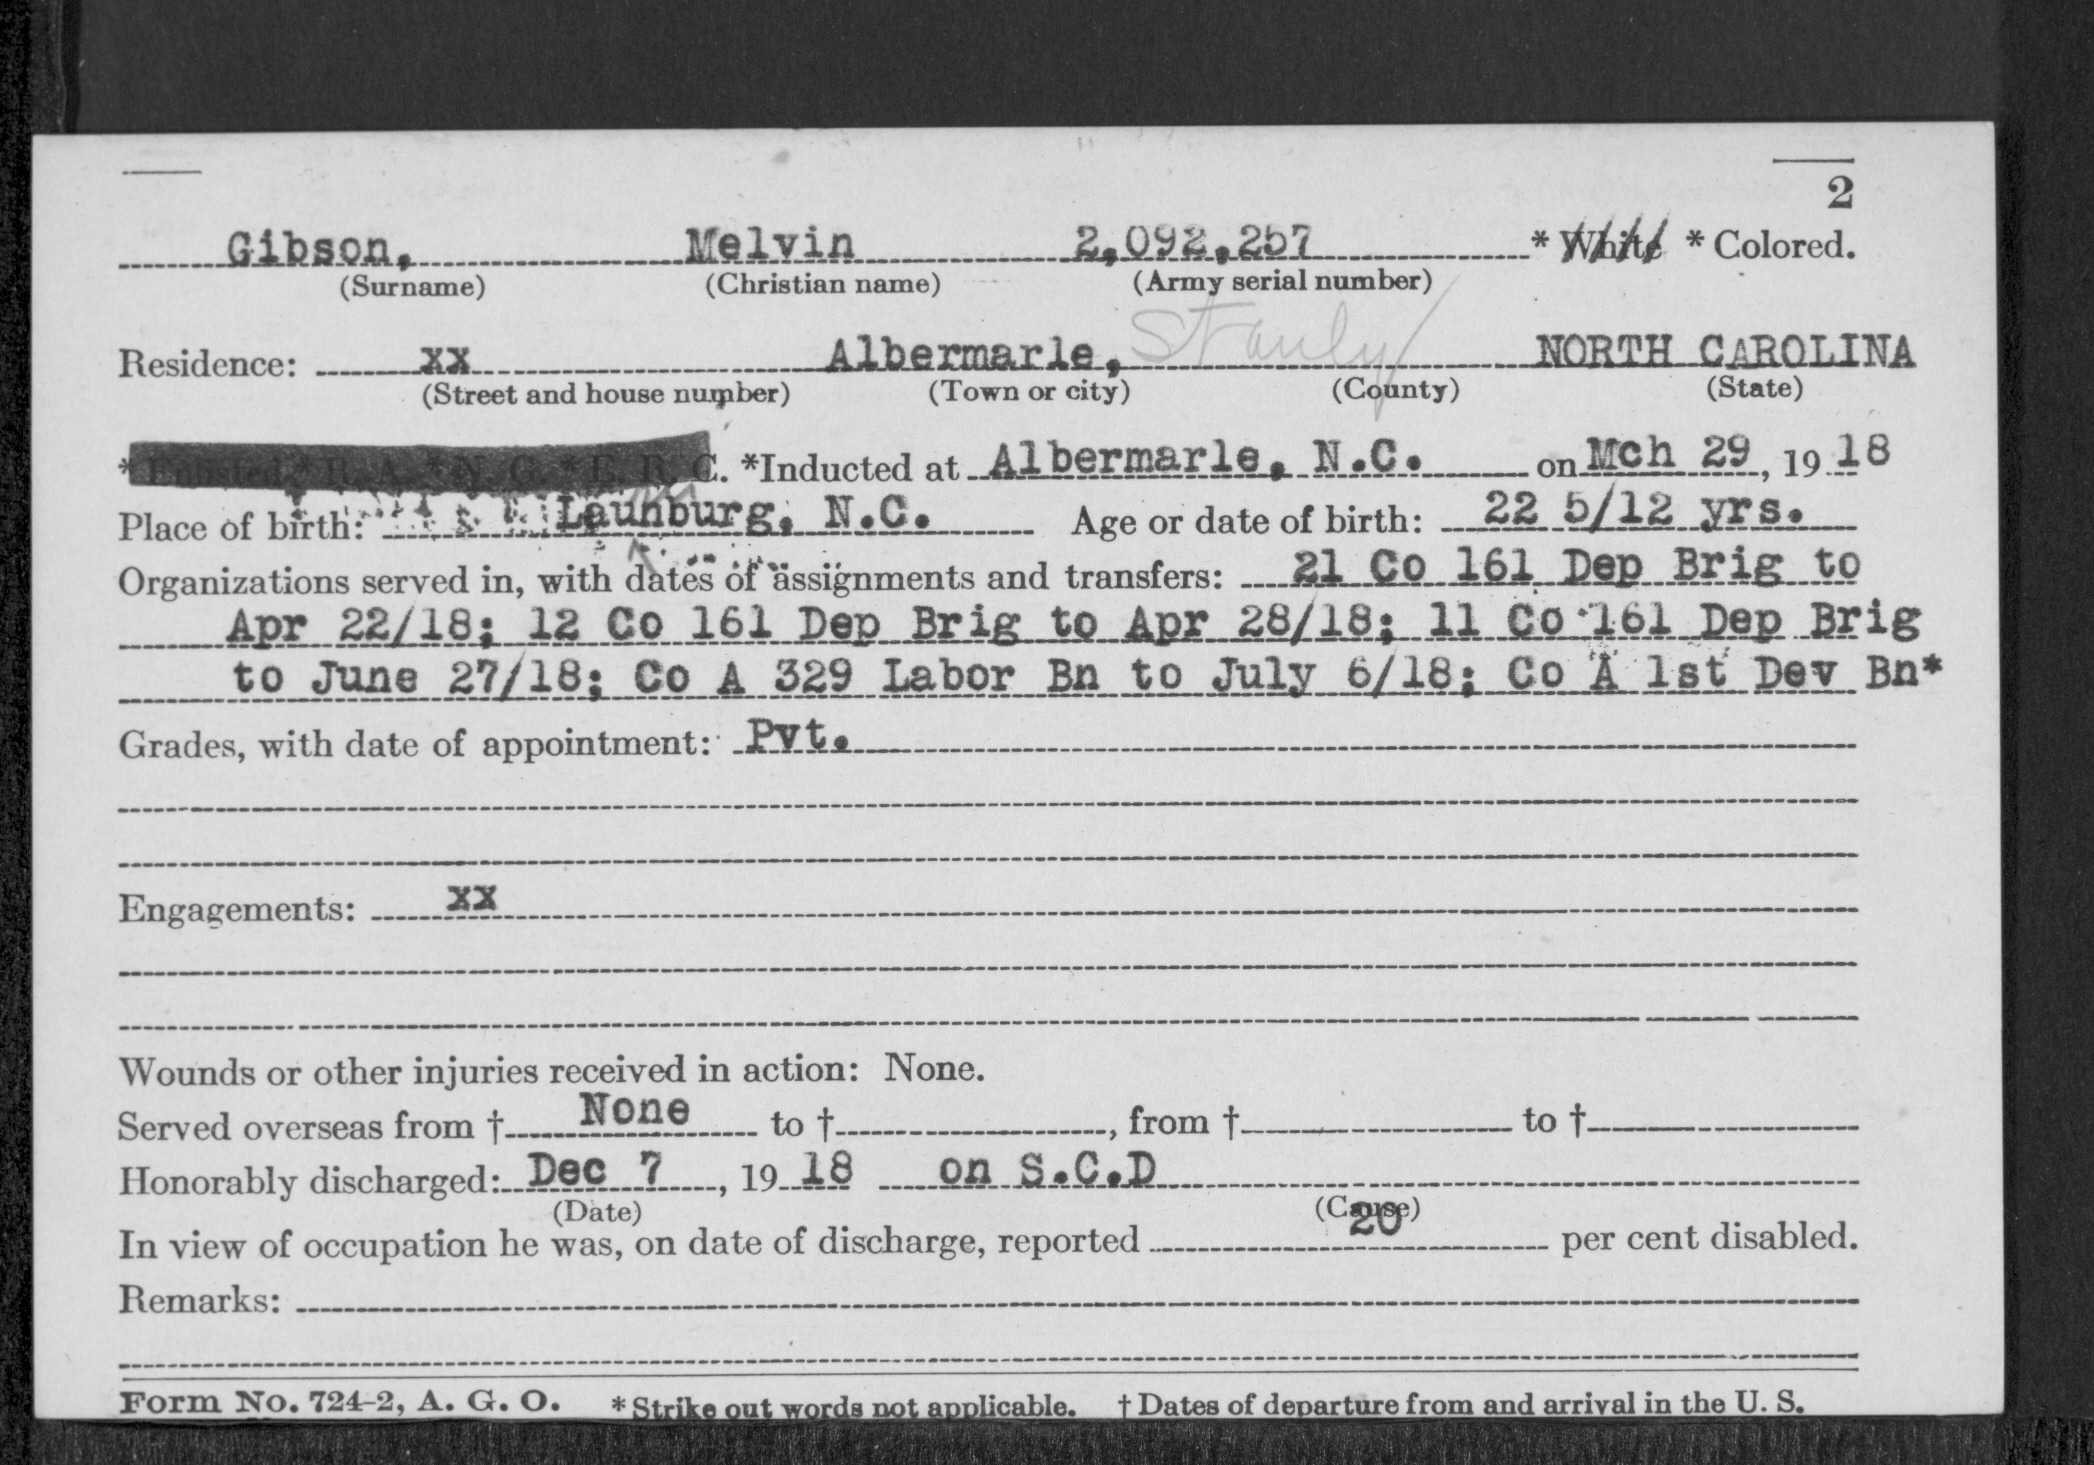 2
Gibson, Melvin 2,092,257 * White * Colored.
(Surname) (Christian name) (Army serial number)
Residence: xx Albermarle, Stanly NORTH CAROLINA
(Street and house number) (Town or city) (County) (State)
* Enlisted * R. A. * N. G. * E. R. C. *Inducted at Albermarle, N.C. on Mch 29, 19 18
Place of birth: Launburg, N.C. Age or date of birth: 22 5/12 yrs.
Organizations served in, with dates of assignments and transfers: 21 Co 161 Dep Brig to
Apr 22/18; 12 Co 161 Dep Brig to Apr 28/18; 11 Co 161 Dep Brig
to June 27/18; Co A 329 Labor Bn to July 6/18; Co A 1st Dev Bn*
Grades, with date of appointment: Pvt.
Engagements: xx
Wounds or other injuries received in action: None.
Served overseas from † None to †, from † to †
Honorably discharged: Dec 7, 19 18 on S.C.D
(Date) (Cause)
In view of occupation he was, on date of discharge, reported 20 per cent disabled.
Remarks:
Form No. 724-2, A. G. O. * Strike out words not applicable. † Dates of departure from and arrival in the U. S.